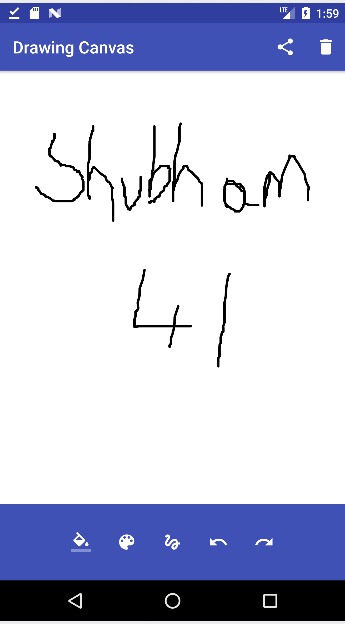 LTE 1:59
Drawing Canvas
Shubham
41